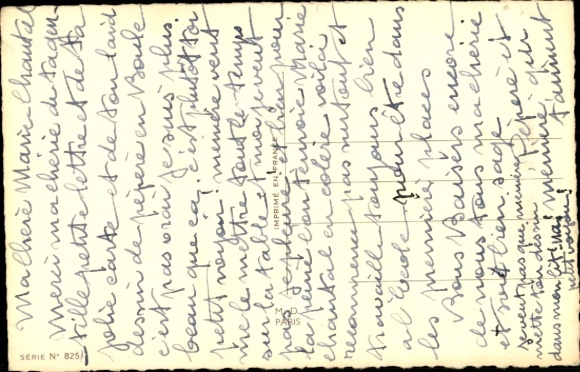 Ma chère Marie Chantal
Merci ma chérie de ta gen-
tille petite lettre et de ta
jolie carte et de ton laid
dessin de pépère en Boule
c'est pas vrai je suis plus
beau que ça. c'est plutôt toi
petit noyon! memère veut
me le mettre tout le temps
sur la table et moi je veut
pas Jephine. et bien pour
la peine l'on t'envoie Marie
chantal en colère voilà
recompence pas surtout et
travaille toujours bien
a l'école pour être dans
les premières places
Bons Baisers encore
de nous tous ma chérie
et soit bien sage
Pépère et
memère qui
t'aiment
je veut pas que memère
mette ton dessin
dans mon
petit
IMPRIMÉ EN FRANCE
M.D.
PARIS
SÉRIE N° 825/